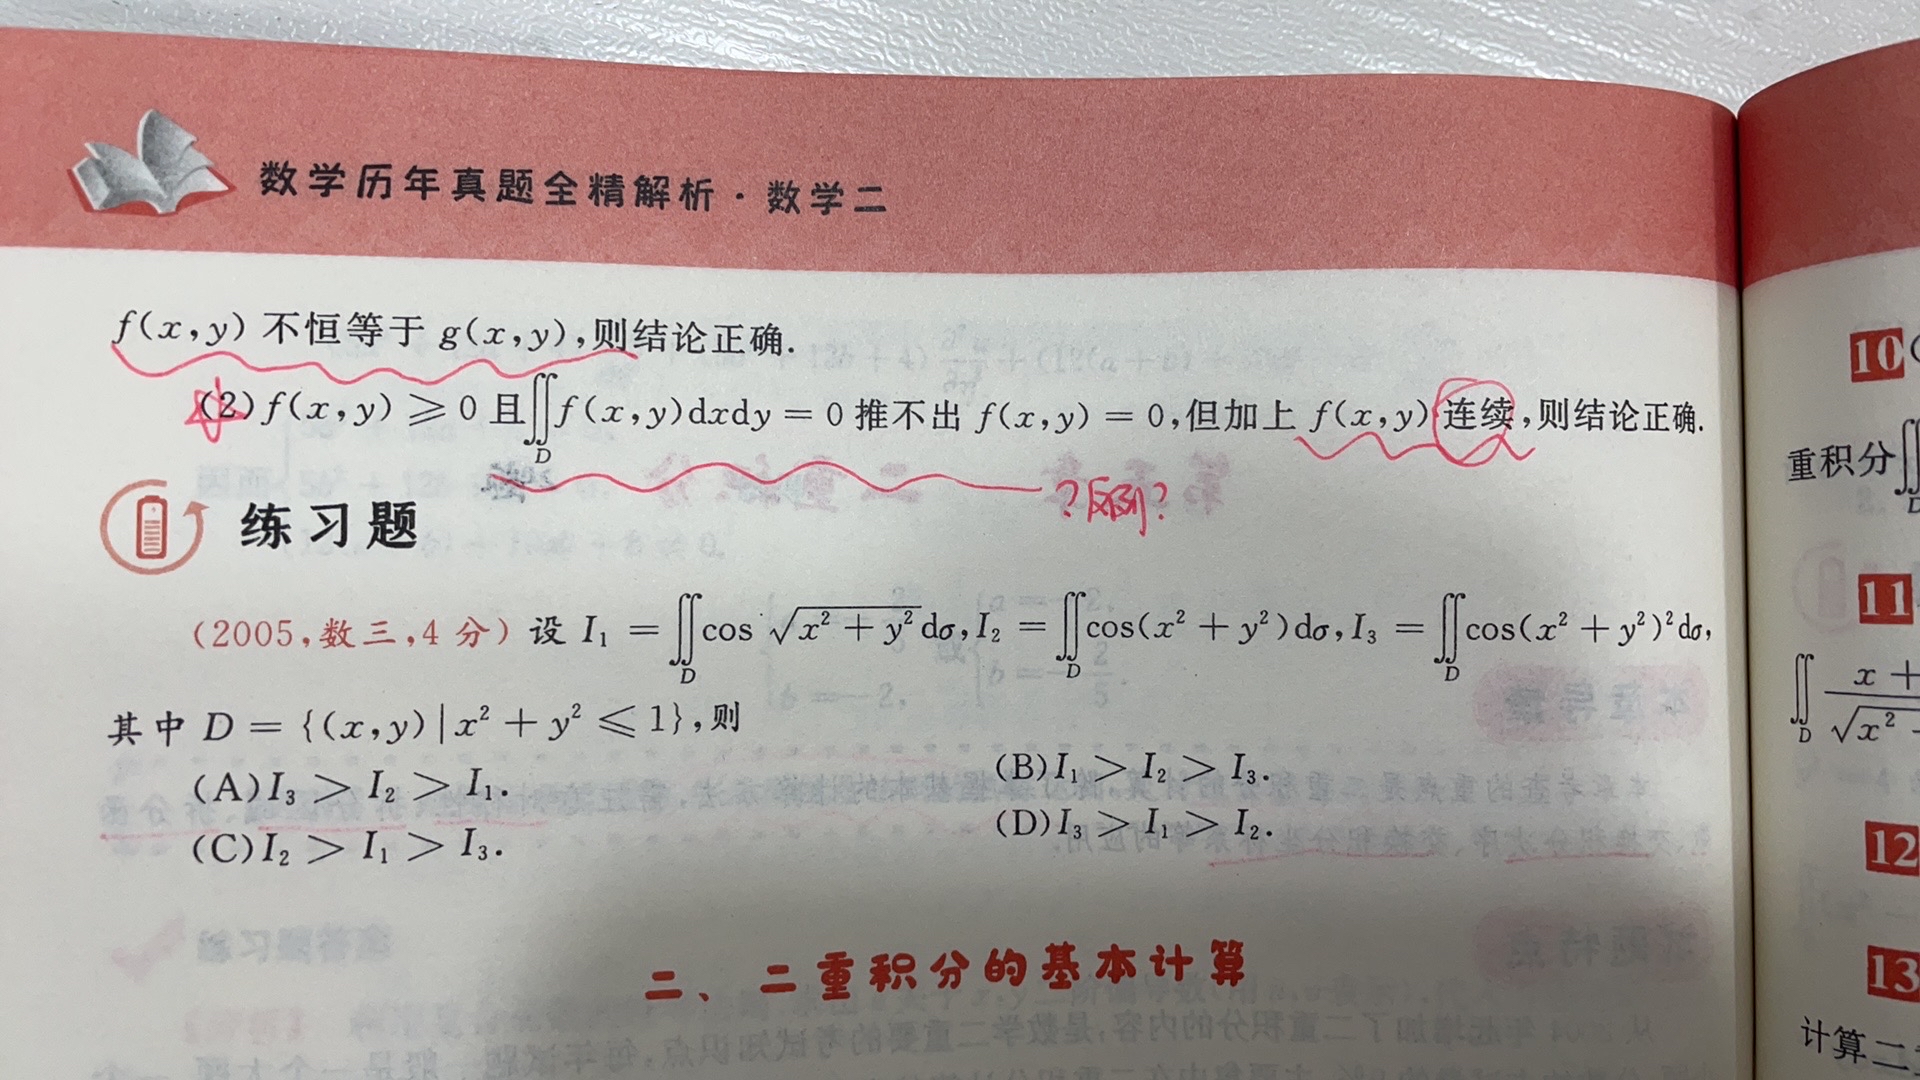 数学历年真题全精解析·数学二
f(x,y) 不恒等于 g(x,y),则结论正确.
(2) f(x,y) ⩾ 0 且∬_D f(x,y)dxdy = 0 推不出 f(x,y) = 0,但加上 f(x,y) 连续,则结论正确.
?反例?
练习题
(2005,数三,4 分) 设 I₁ = ∬_D cos √(x² + y²) dσ, I₂ = ∬_D cos(x² + y²)dσ, I₃ = ∬_D cos(x² + y²)²dσ,
其中 D = {(x,y)|x² + y² ⩽ 1},则
(A) I₃ > I₂ > I₁.
(B) I₁ > I₂ > I₃.
(C) I₂ > I₁ > I₃.
(D) I₃ > I₁ > I₂.
二、二重积分的基本计算
10
重积分∬
11
∬_D x + √x²
12
13
计算二